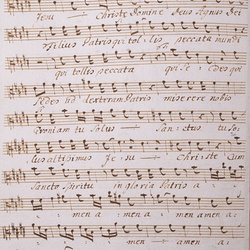 Jesu — Christe Domine Deus Agnus Dei
Filius Patris qui tollis peccata mundi
qui tollis peccata qui sedes
sedes ad dexteram Patris miserere nobis
quoniam tu solus — sanctus tu so:
lus altissimus Jesu — Christe Cum
Sancto Spiritu in gloria Patris a :
: men a : : men amen a :
: men a : : men